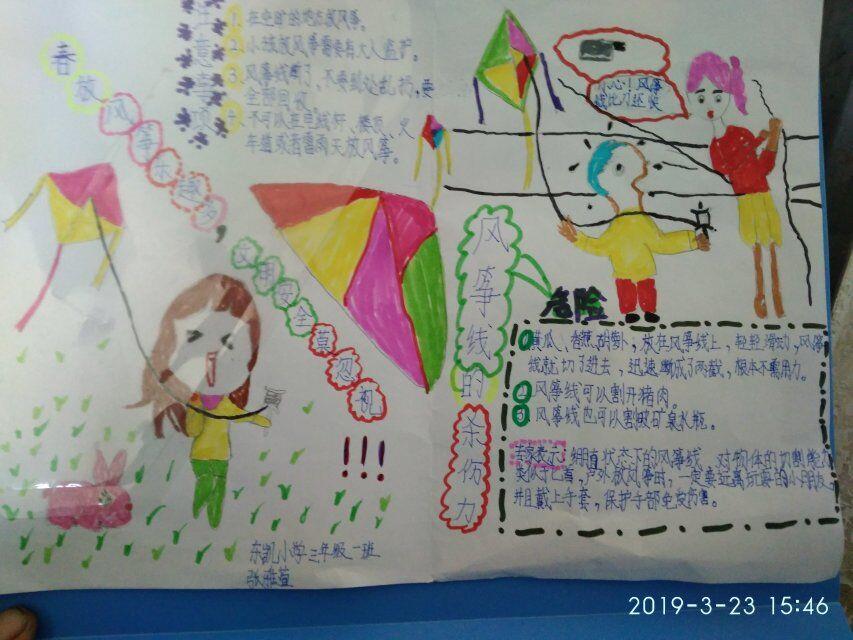 春放风筝乐趣多,
文明安全莫忽视
!!!
注意事项
1. 在空旷的地方放风筝。
2. 小孩放风筝需要有大人监护。
3 风筝线断了,不要到处乱扔,要
全部回收。
4. 不可以在电线杆、楼顶、火
车道或者雷雨天放风筝。
小心!风筝
线比刀还快
风筝线的杀伤力
危险
1 黄瓜、香蕉、胡萝卜,放在风筝线上,轻轻滑动,风筝
线就切了进去,迅速断成了两截,根本不需用力。
2 风筝线可以割开猪肉。
3 风筝线也可以割破矿泉水瓶。
专家表示:绷直状态下的风筝线,对物体的切割能力
类似于匕首,户外放风筝时,一定要远离玩耍的小朋友,
并且戴上手套,保护手部免受伤害。
东凯小学三年级一班
张雅萱
2019-3-23 15:46